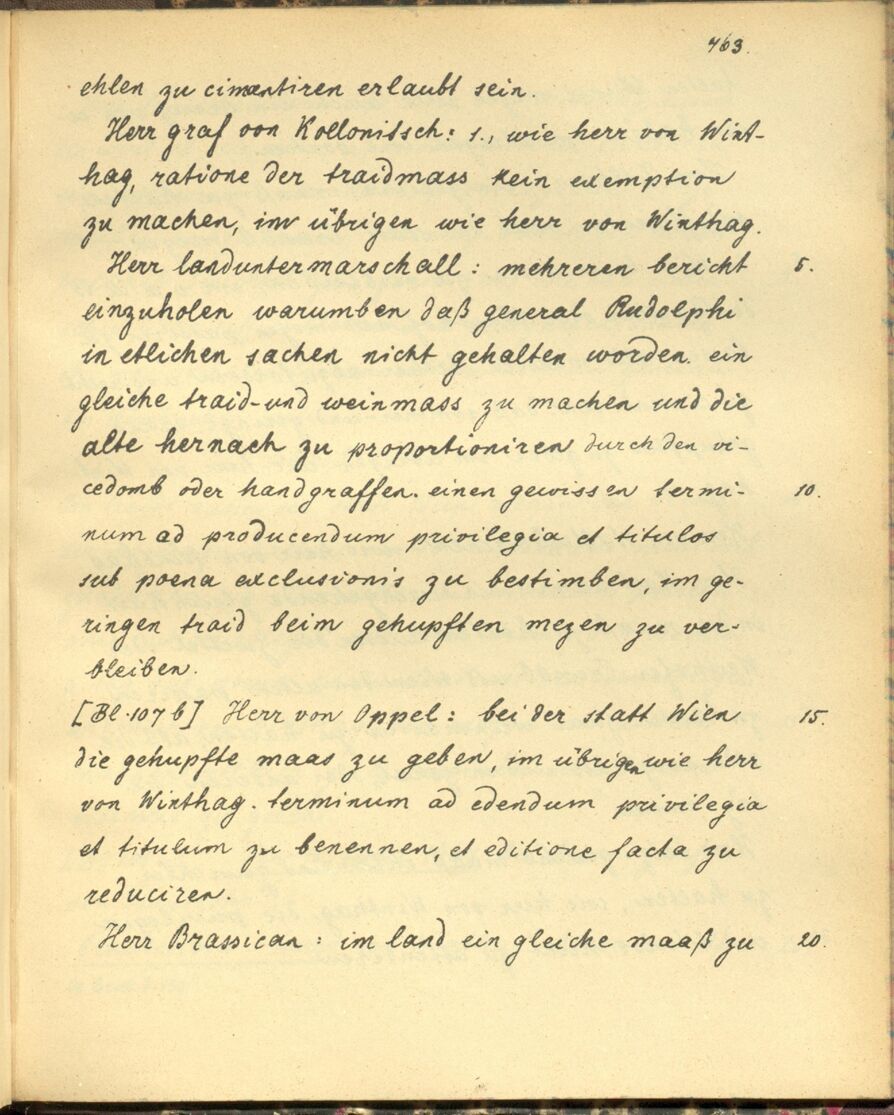 763.
ehlen zu cimentiren erlaubt sein.
Herr graf von Kollonitsch: 1., wie herr von Wint-
hag, ratione der traidmass kein exemption
zu machen, im übrigen wie herr von Winthag.
Herr landuntermarschall: mehreren bericht 5.
einzuholen warumben daß general Rudolphi
in etlichen sachen nicht gehalten worden. ein
gleiche traid- und weinmass zu machen und die
alte hernach zu proportioniren durch den vi-
cedomb oder handgraffen. einen gewissen termi- 10.
num ad producendum privilegia et titulos
sub poena exclusionis zu bestimben, im ge-
ringen traid beim gehupften mezen zu ver-
bleiben.
[Bl. 107 b] Herr von Oppel: bei der statt Wien 15.
die gehupfte maas zu geben, im übrigen wie herr
von Winthag. terminum ad edendum privilegia
et titulum zu benennen, et editione facta zu
reduciren.
Herr Brassican: im land ein gleiche maaß zu 20.